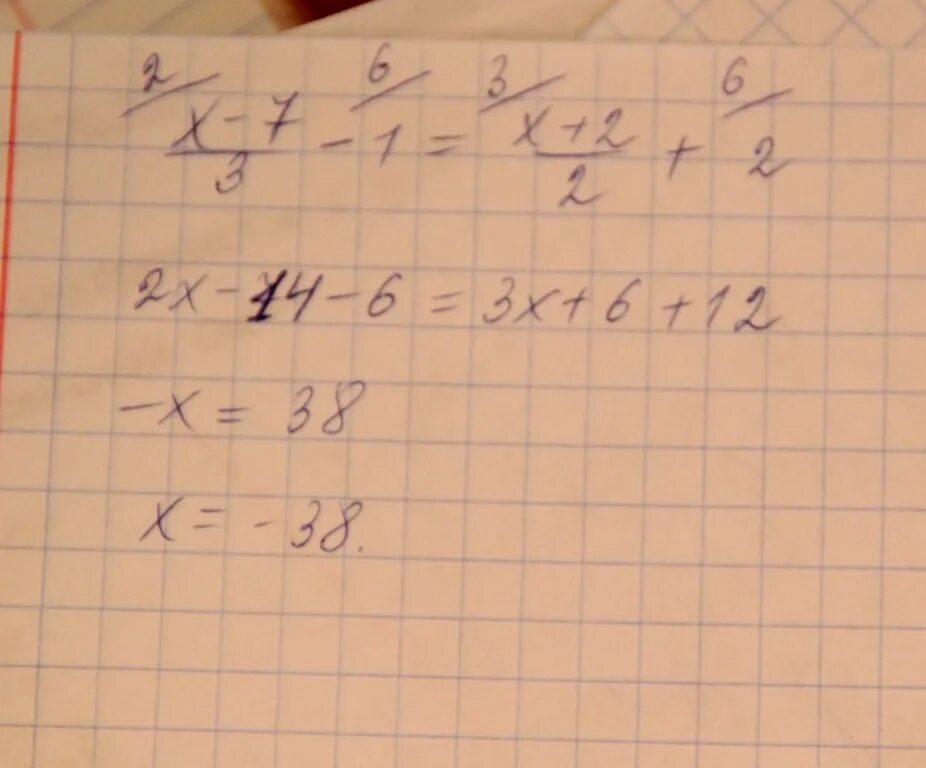 2/ 6/ 3/ 6/
x-7/3 - 1 = x+2/2 + 2
2x-14-6 = 3x+6+12
-x = 38
x = -38.